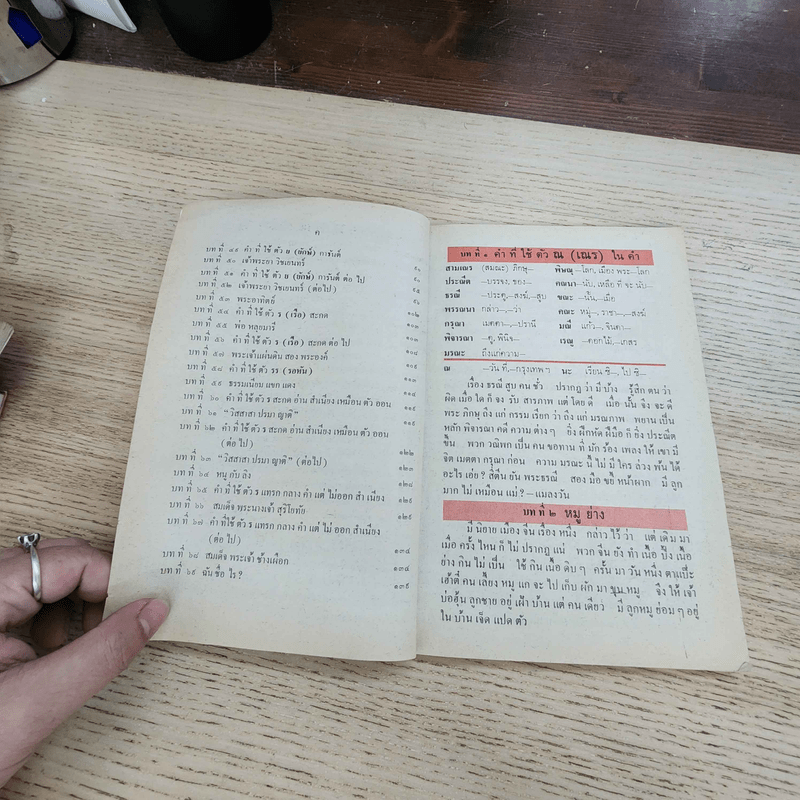 ค
บท ที่ ๔๙ คำ ที่ ใช้ ตัว ย (ยักษ์) การันต์
บท ที่ ๕๐ เจ้าพระยา วิชเยนทร์
บท ที่ ๕๑ คำ ที่ ใช้ ตัว ย (ยักษ์) การันต์ ต่อ ไป
บท ที่ ๕๒ เจ้าพระยา วิชเยนทร์ (ต่อไป)
บท ที่ ๕๓ พระอาทิตย์
บท ที่ ๕๔ คำ ที่ ใช้ ตัว ร (เรือ) สะกด ๑๐๒
บท ที่ ๕๕ พ่อ หลุยมารี
บท ที่ ๕๖ คำ ที่ ใช้ ตัว ร (เรือ) สะกด ต่อ ไป
บท ที่ ๕๗ พระเจ้าแผ่นดิน สอง พระองค์ ๑๐๘
บท ที่ ๕๘ คำ ที่ ใช้ ตัว รร (รอหัน)
บท ที่ ๕๙ ธรรมเนียม แขก แดง ๑๑๓
บท ที่ ๖๐ คำ ที่ ใช้ ตัว ร สะกด อ่าน สำเนียง เหมือน ตัว ออน ๑๑๔
บท ที่ ๖๑ “วิสสาสา ปรมา ญาติ” ๑๑๙
บท ที่ ๖๒ คำ ที่ ใช้ ตัว ร สะกด อ่าน สำเนียง เหมือน ตัว ออน
(ต่อ ไป) ๑๒๒
บท ที่ ๖๓ “วิสสาสา ปรมา ญาติ” (ต่อไป)
บท ที่ ๖๔ หนู กับ ลิง
บท ที่ ๖๕ คำ ที่ ใช้ ตัว ร แทรก กลาง คำ แต่ ไม่ออก สำ เนียง
บท ที่ ๖๖ สมเด็จ พระนางเจ้า สุริโยทัย ๑๒๙
บท ที่ ๖๗ คำ ที่ ใช้ ตัว ร แทรก กลาง คำ แต่ ไม่ ออก สำเนียง
(ต่อ ไป) ๑๓๔
บท ที่ ๖๘ สมเด็จ พระเจ้า ช้างเผือก
บท ที่ ๖๙ ฉัน ชื่อ ไร ? ๑๓๙
บท ที่ ๑ คำ ที่ ใช้ ตัว ณ (เณร) ใน คำ
สามเณร (สมณะ) ภิกษุ– พิษณุ –โลก, เมือง พระ–โลก
ประณีต –บรรจง, ของ– คณนา –นับ, เหลือ ที่ จะ นับ–
ธรณี –ประตู, –สงฆ์, –สูบ ขณะ –นั้น, –เมื่อ
พรรณนา กล่าว–, –ว่า คณะ หมู่–, ราชา–, –สงฆ์
กรุณา เมตตา–, –ปรานี มณี แก้ว–, จินดา–
พิจารณา –ดู, พินิจ– เรณู –ดอกไม้, –เกสร
มรณะ ถึงแก่ความ–
ณ –วัน ที่, –กรุงเทพ ฯ นะ เรียน ซิ–, ไป ซิ–
เรื่อง ธรณี สูบ คน ชั่ว ปรากฏ ว่า มี บ้าง รู้สึก ตน ว่า
ผิด เมื่อ ใด ก็ จง รับ สารภาพ แต่ โดย ดี เมื่อ นั้น จึง จะ ดี
พระ ภิกษุ ถึง แก่ กรรม เรียก ว่า ถึง แก่ มรณภาพ พยาน เป็น
หลัก พิจารณา คดี ความ ต่าง ๆ ยิ่ง ฝึกหัด ฝีมือ ก็ ยิ่ง ประณีต
ขึ้น พวก วณิพก เป็น คน ขอทาน ที่ มัก ร้อง เพลง ให้ เขา มี
จิต เมตตา กรุณา ก่อน ความ มรณะ นี้ ไม่ มี ใคร ล่วง พ้น ได้
อะไร เอ่ย? สี่ตีน ยัน พระธรณี สอง มือ ขยี้ หน้าผาก มี ลูก
มาก ไม่ เหมือน แม่? — แมลงวัน
บท ที่ ๒ หมู ย่าง
มี นิยาย เมือง จีน เรื่อง หนึ่ง กล่าว ไว้ ว่า แต่ เดิม มา
เมื่อ ครั้ง ไหน ก็ ไม่ ปรากฏ แน่ พวก จีน ยัง ทำ เนื้อ ปิ้ง เนื้อ
ย่าง กิน ไม่ เป็น ใช้ กิน เนื้อ ดิบ ๆ ครั้น มา วัน หนึ่ง ตาแป๊ะ
เฮ้าตี่ คน เลี้ยง หมู แก จะ ไป เก็บ ผัก มา ขุน หมู จึง ให้ เจ้า
บ่อฮุ้น ลูกชาย อยู่ เฝ้า บ้าน แต่ คน เดียว มี ลูกหมู ย่อม ๆ อยู่
ใน บ้าน เจ็ด แปด ตัว